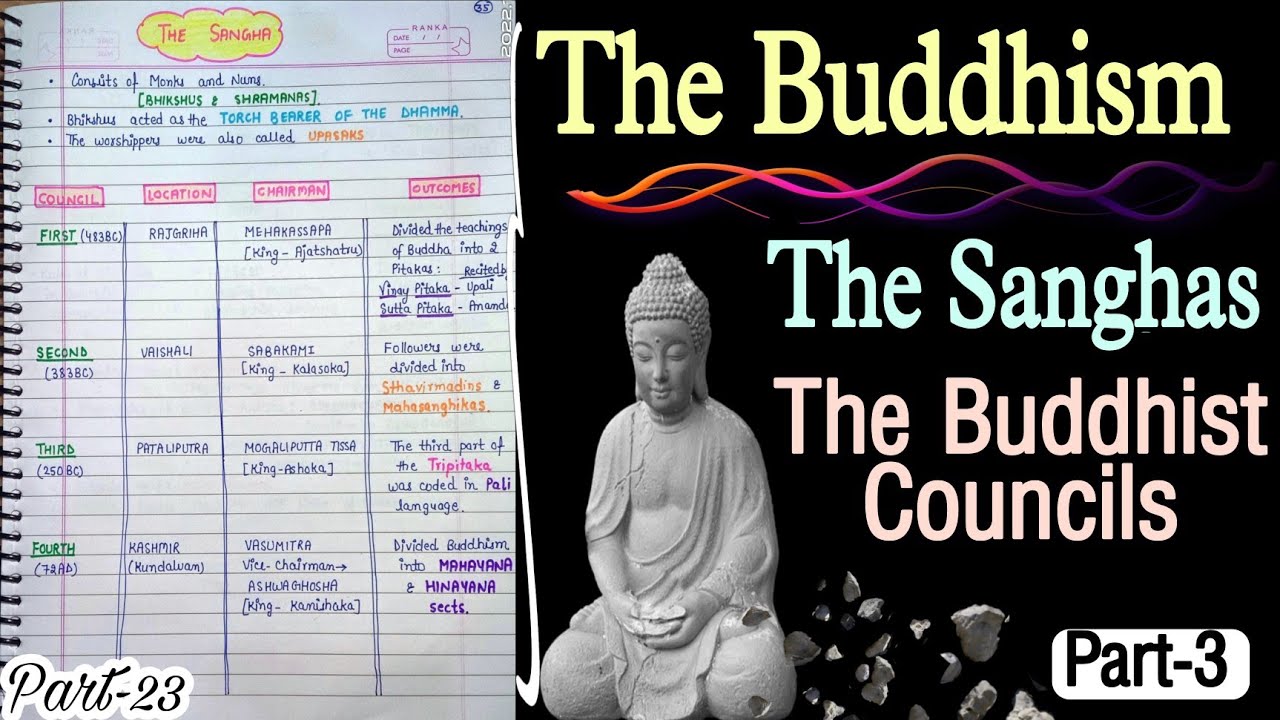 35
THE SANGHA
RANKA
DATE / /
PAGE
2022.
• Consits of Monks and Nuns.
[BHIKSHUS & SHRAMANAS].
• Bhikshus acted as the TORCH BEARER OF THE DHAMMA.
• The worshippers were also called UPASAKS
COUNCIL LOCATION CHAIRMAN OUTCOMES
FIRST (483BC) RAJGRIHA MEHAKASSAPA Divided the teachings
[King - Ajatshatru] of Buddha into 2
Pitakas: Recited by
Vinay Pitaka - Upali
Sutta Pitaka - Anand
SECOND VAISHALI SABAKAMI Followers were
(383BC) [King - Kalasoka] divided into
Sthavirmadins &
Mahasanghikas.
THIRD PATALIPUTRA MOGALIPUTTA TISSA The third part of
(250BC) [King-Ashoka] the Tripitaka
was coded in Pali
language.
FOURTH KASHMIR VASUMITRA Divided Buddhism
(72AD) (Kundalvan) Vice-Chairman→ into MAHAYANA
ASHWAGHOSHA & HINAYANA
[King- Kanishaka] sects.
Part-23
The Buddhism
The Sanghas
The Buddhist
Councils
Part-3